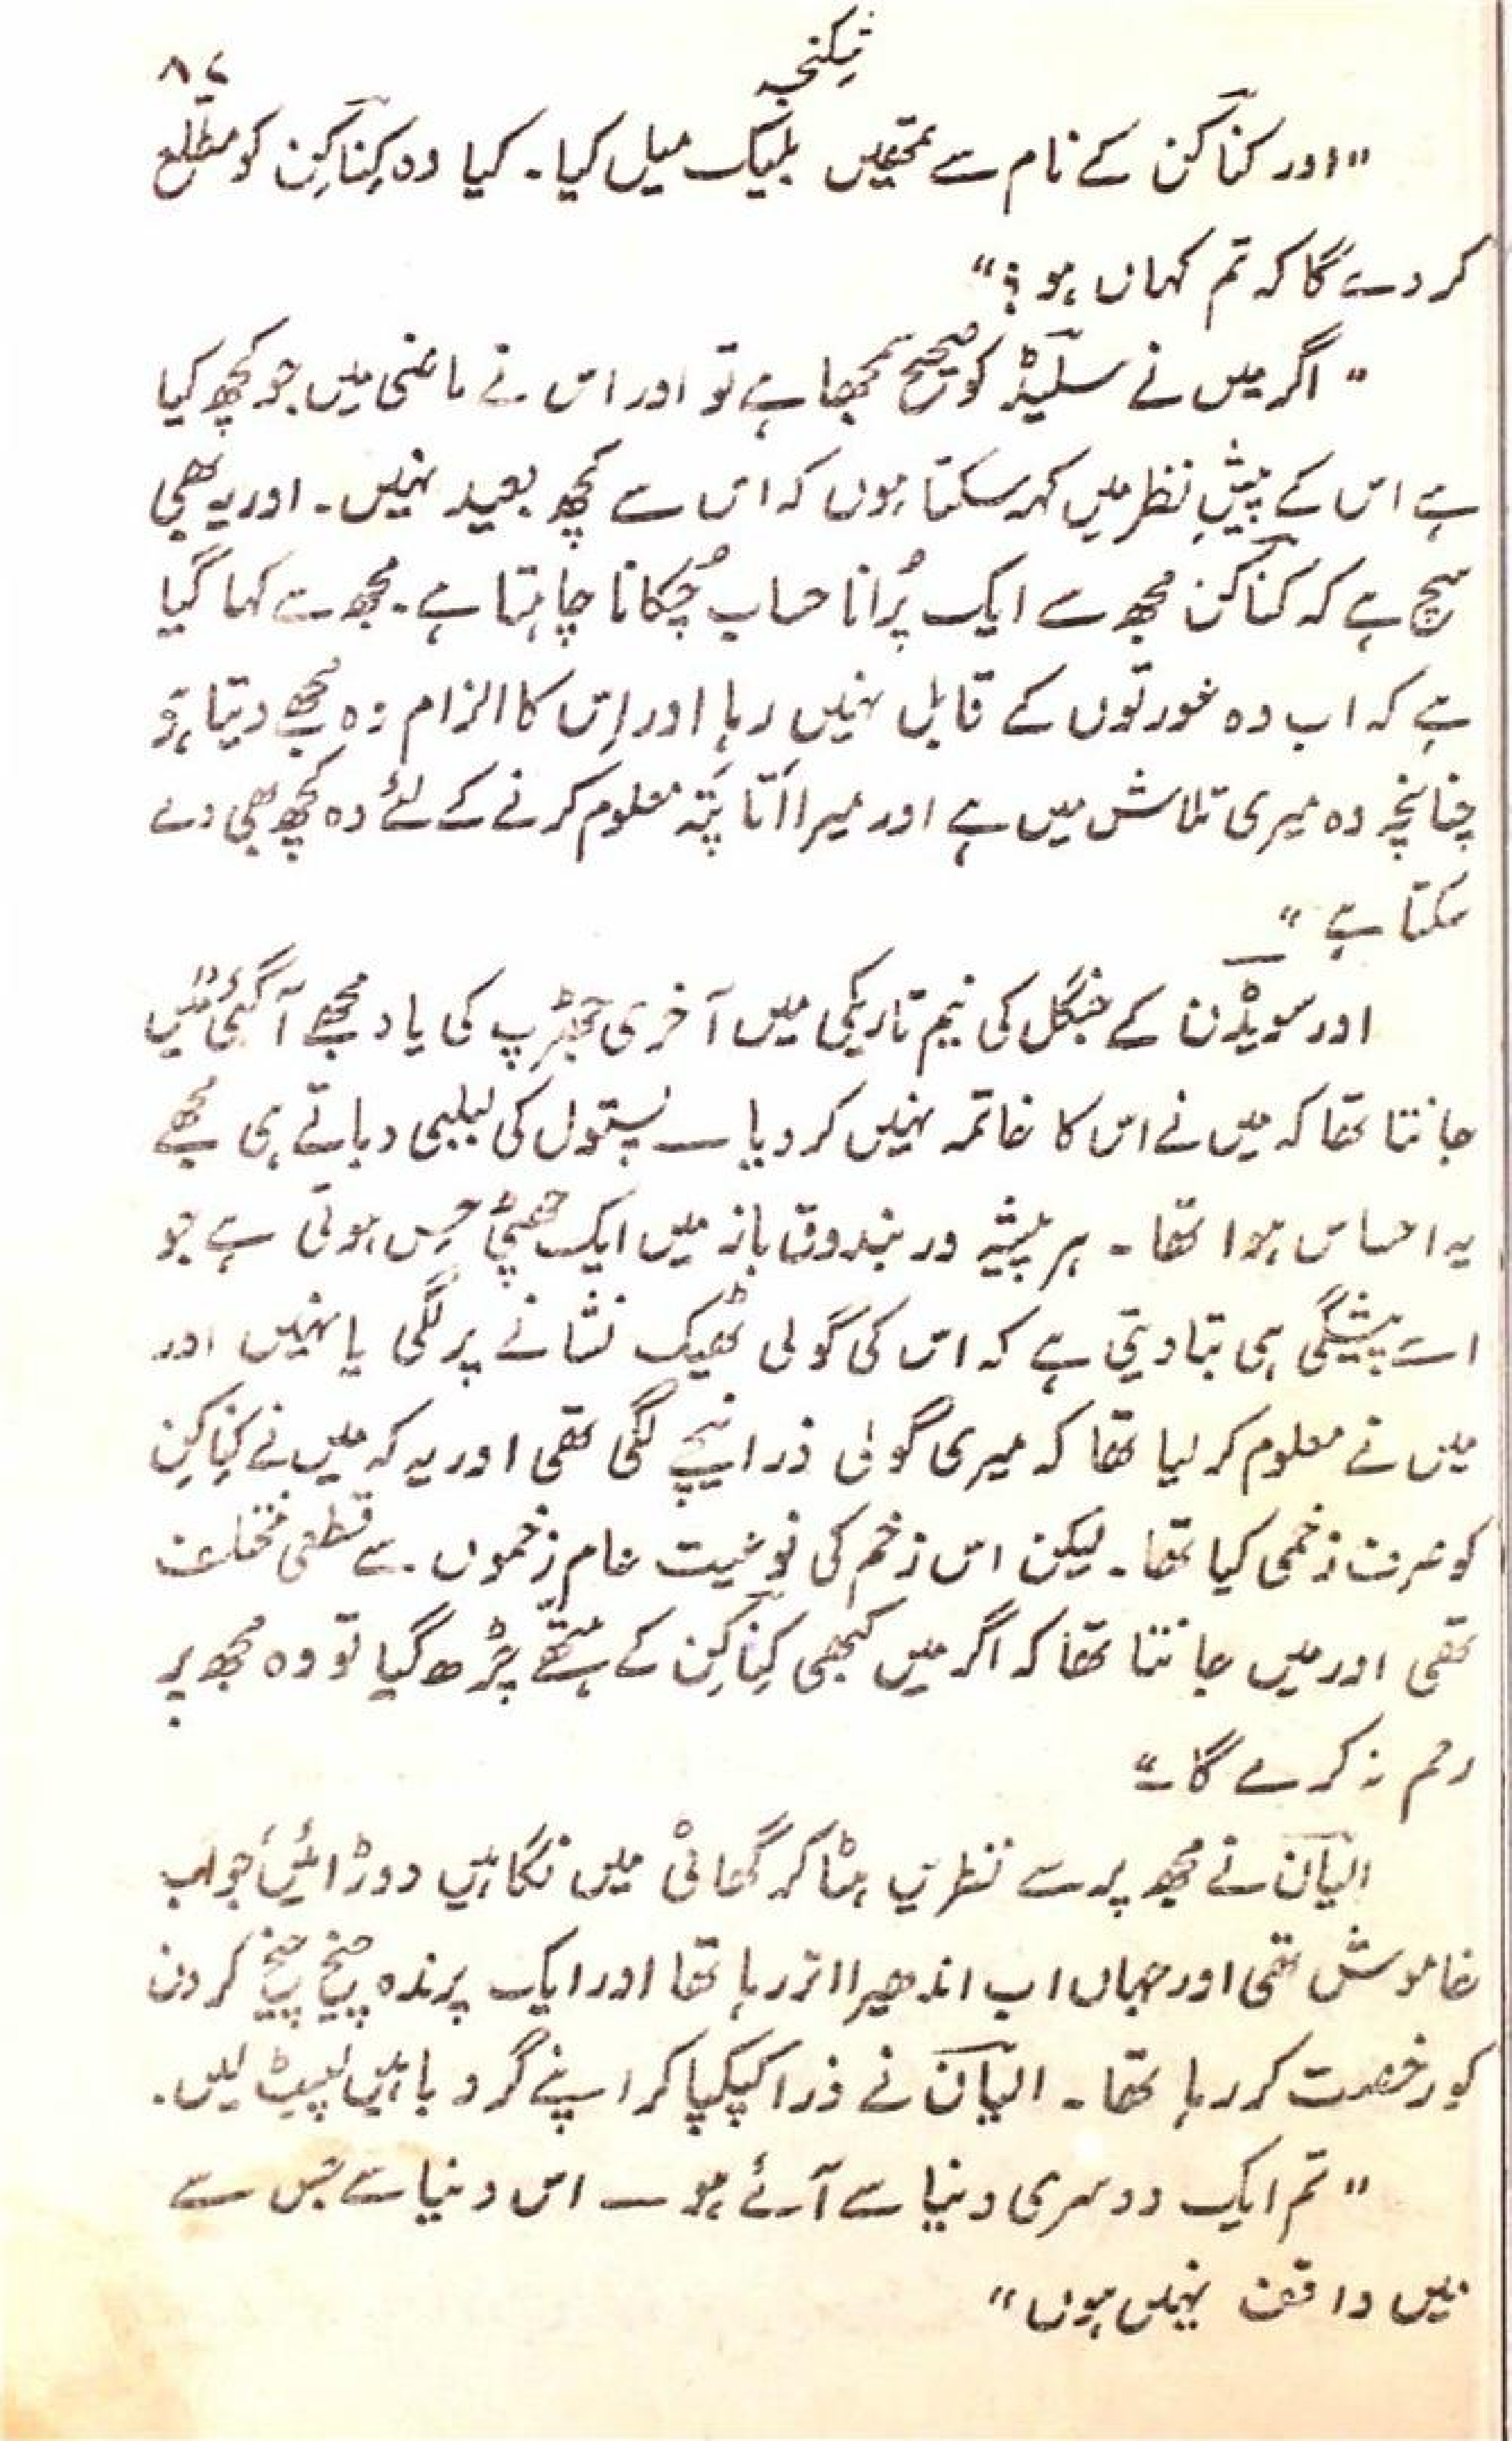 شکنجہ ۸۷
"اور کناکن کے نام سے تمھیں بلیک میل کیا۔ کیا وہ کِناکِن کو مطّلع
کر دے گا کہ تم کہاں ہو؟"
"اگر میں نے سلیڈ کو صحیح سمجھا ہے تو اور اس نے ماضی میں جو کچھ کیا
ہے اس کے پیشِ نظر میں کہہ سکتا ہوں کہ اس سے کچھ بعید نہیں۔ اور یہ بھی
سچ ہے کہ کناکن مجھ سے ایک پُرانا حساب چُکانا چاہتا ہے۔ مجھ سے کہا گیا
ہے کہ اب وہ عورتوں کے قابل نہیں رہا اور اِس کا الزام وہ مجھے دیتا ہے
چنانچہ وہ میری تلاش میں ہے اور میرا اَتا پَتہ معلوم کرنے کے لئے وہ کچھ بھی دے
سکتا ہے"
اور سویڈن کے جنگل کی نیم تاریکی میں آخری جھڑپ کی یاد مجھے آ گئی، میں
جانتا تھا کہ میں نے اس کا خاتمہ نہیں کر دیا — پستول کی لبلبی دباتے ہی مجھے
یہ احساس ہوا تھا۔ ہر پیشہ ور بندوق باز میں ایک چھٹی حِس ہوتی ہے جو
اسے پیشگی ہی بتا دیتی ہے کہ اس کی گولی ٹھیک نشانے پر لگی یا نہیں اور
میں نے معلوم کر لیا تھا کہ میری گولی ذرا نیچے لگی تھی اور یہ کہ میں نے کِناکِن
کو صرف زخمی کیا تھا۔ لیکن اس زخم کی نوعیت عام زخموں سے قطعی مختلف
تھی اور میں جانتا تھا کہ اگر میں کبھی کِناکِن کے ہتّھے چڑھ گیا تو وہ مجھ پر
رحم نہ کرے گا۔"
الیآن نے مجھ پر سے نظریں ہٹا کر گھاٹی میں نگاہیں دوڑائیں، جو اب
خاموش تھی اور جہاں اب اندھیرا اتر رہا تھا اور ایک پرندہ چیخ چیخ کر دن
کو رخصت کر رہا تھا۔ الیآن نے ذرا کپکپا کر اپنے گرد باہیں لپیٹ لیں۔
"تم ایک دوسری دنیا سے آئے ہو — اس دنیا سے جس سے
میں واقف نہیں ہوں"